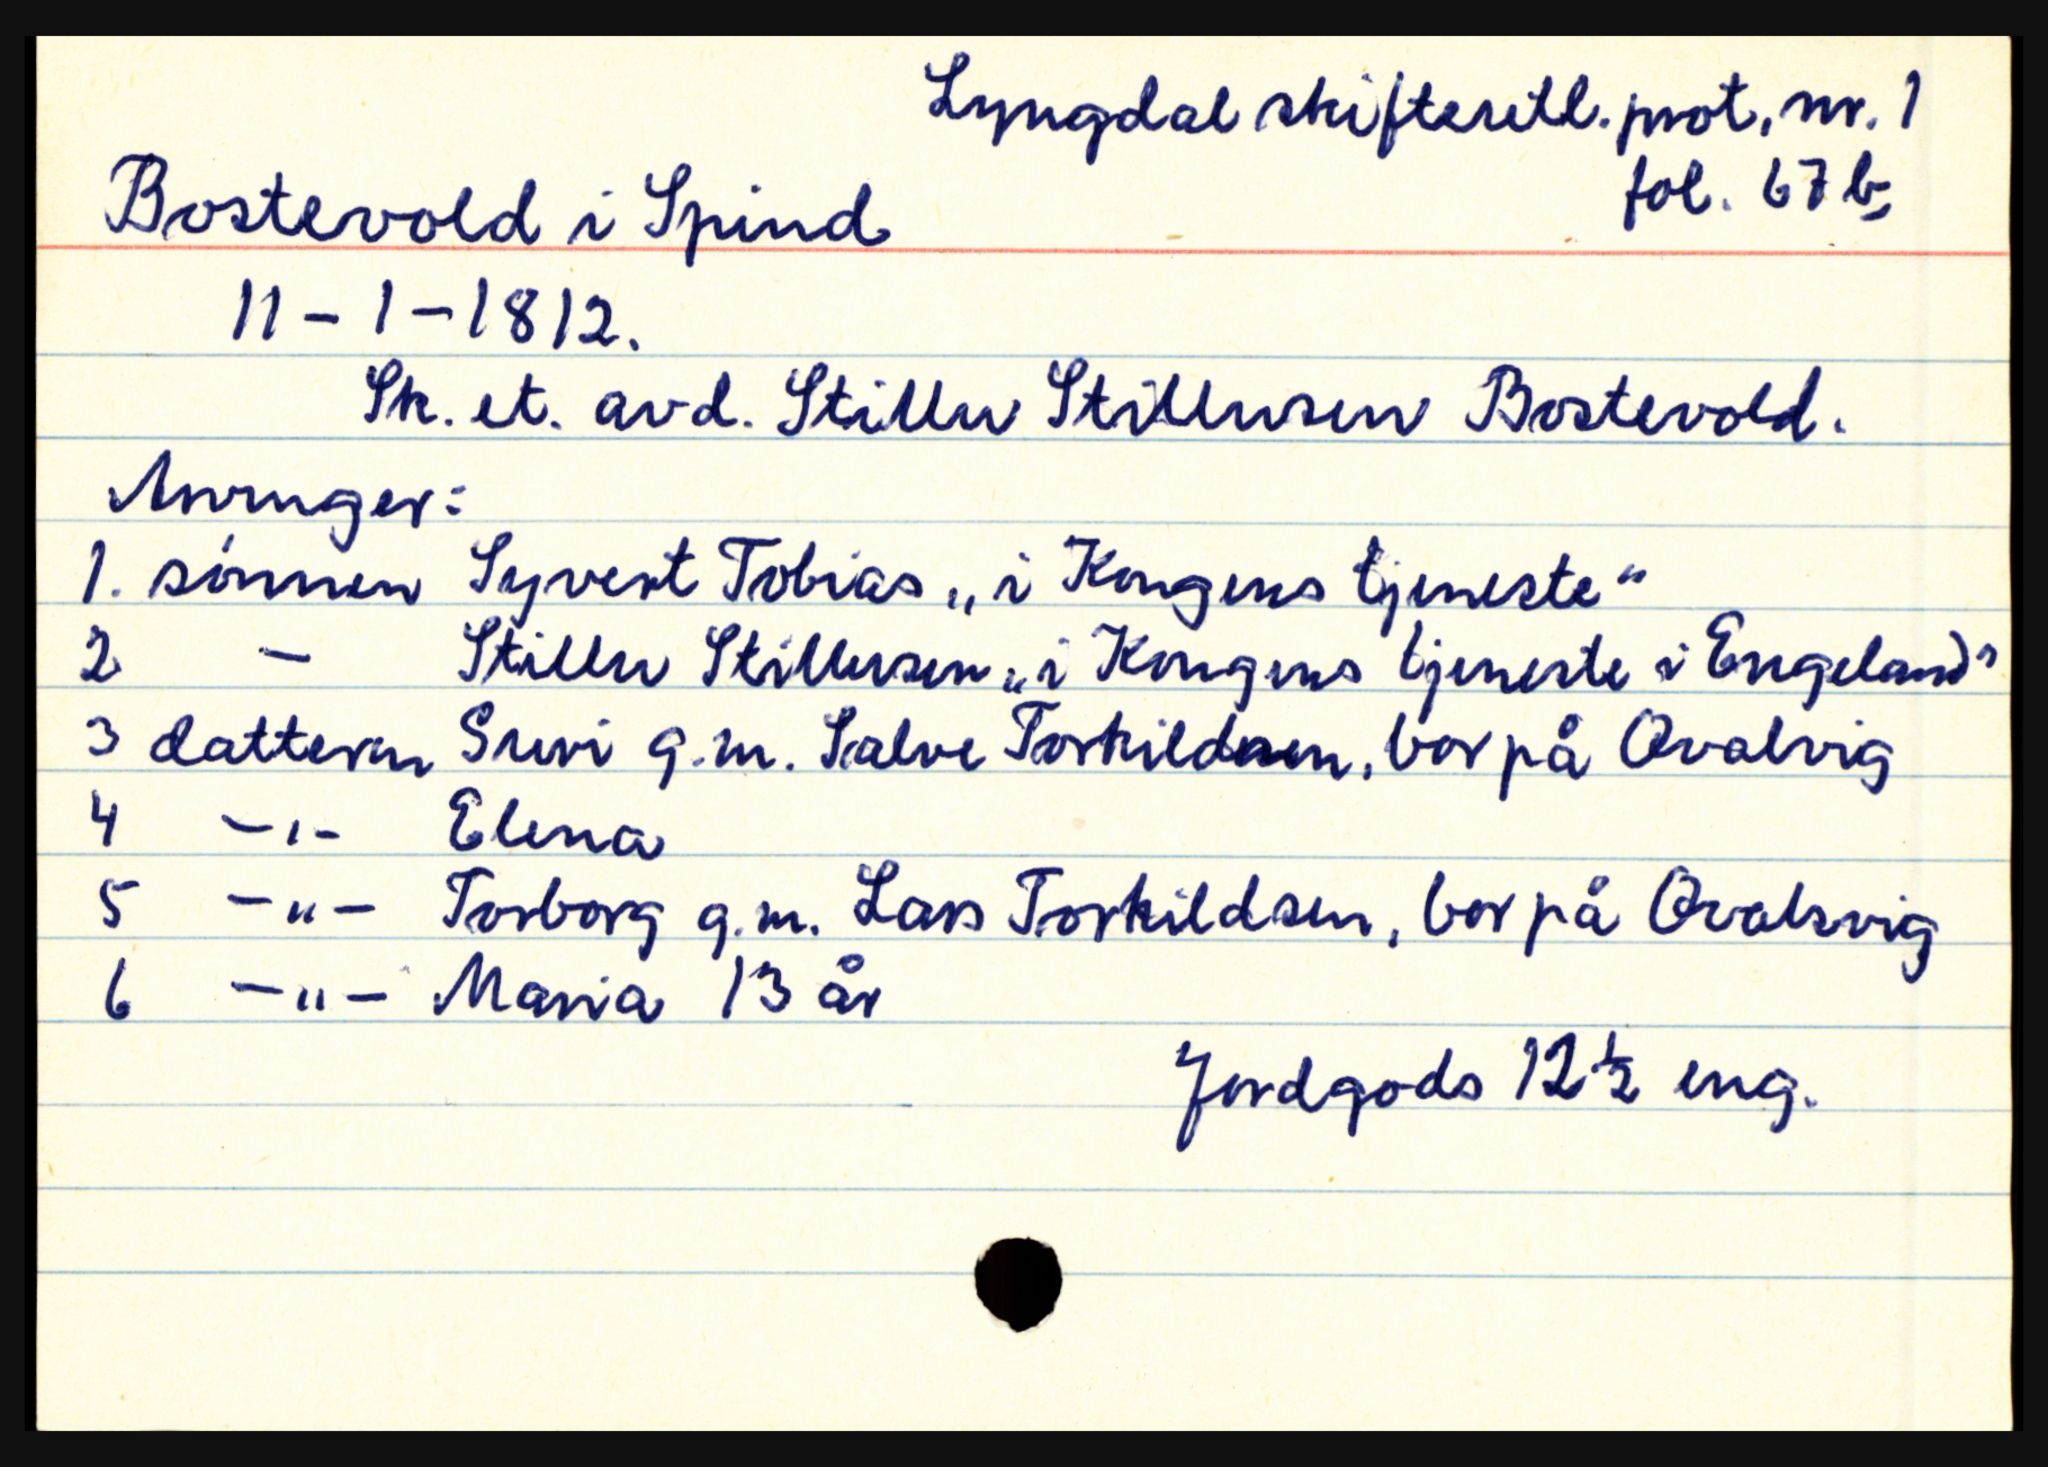 Lyngdal skifteretl. prot. nr. 1
fol. 67 b
Bostevold i Spind
11 - 1 - 1812.
Sk. et. avd. Stillu Stillusen Bostevold.
Arvinger:
1. sønnen Syvert Tobias „i Kongens tjeneste“
2 - Stillu Stillusen „i Kongens tjeneste i Engeland“
3 datteren Sirvi g.m. Salve Torkildsen, bor på Qvalvig
4 -"- Elena
5 -"- Torborg g.m. Lars Torkildsen, bor på Qvalsvig
6 -"- Maria 13 år
Jordgods 12½ eng.